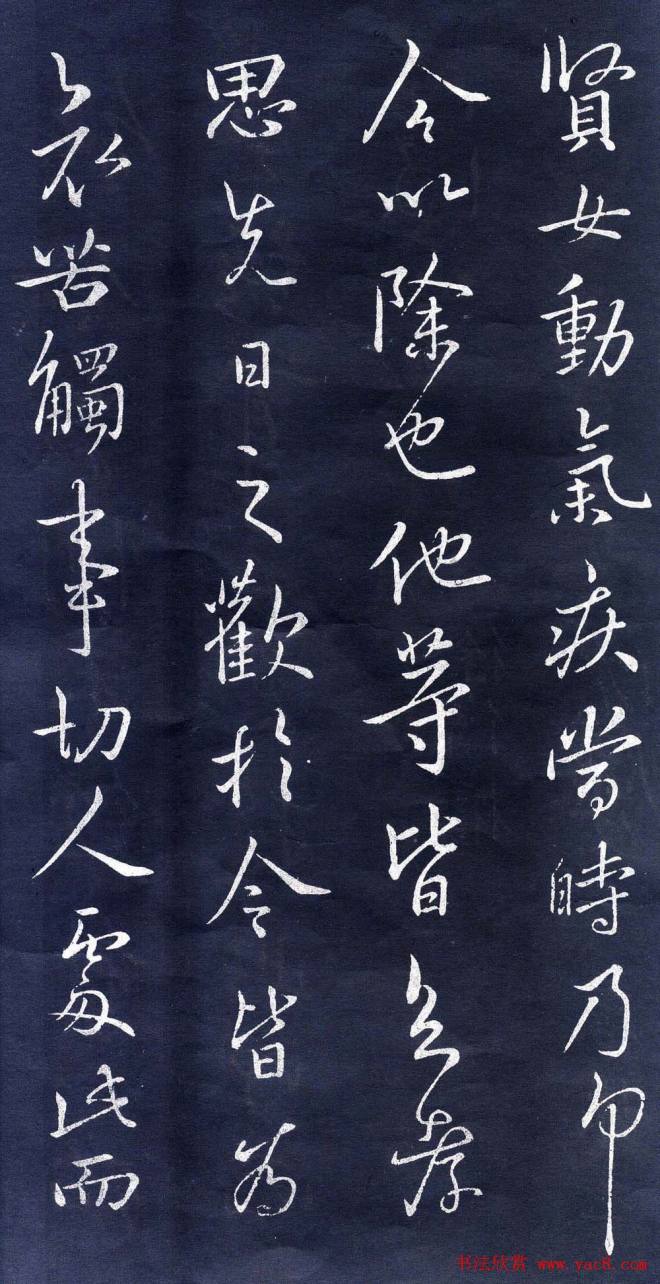 賢女動氣疾當時乃
今以除也他等皆
思先日之歡於今皆為
哀苦觸事切人處此而
书法欣赏 www.yac8.com